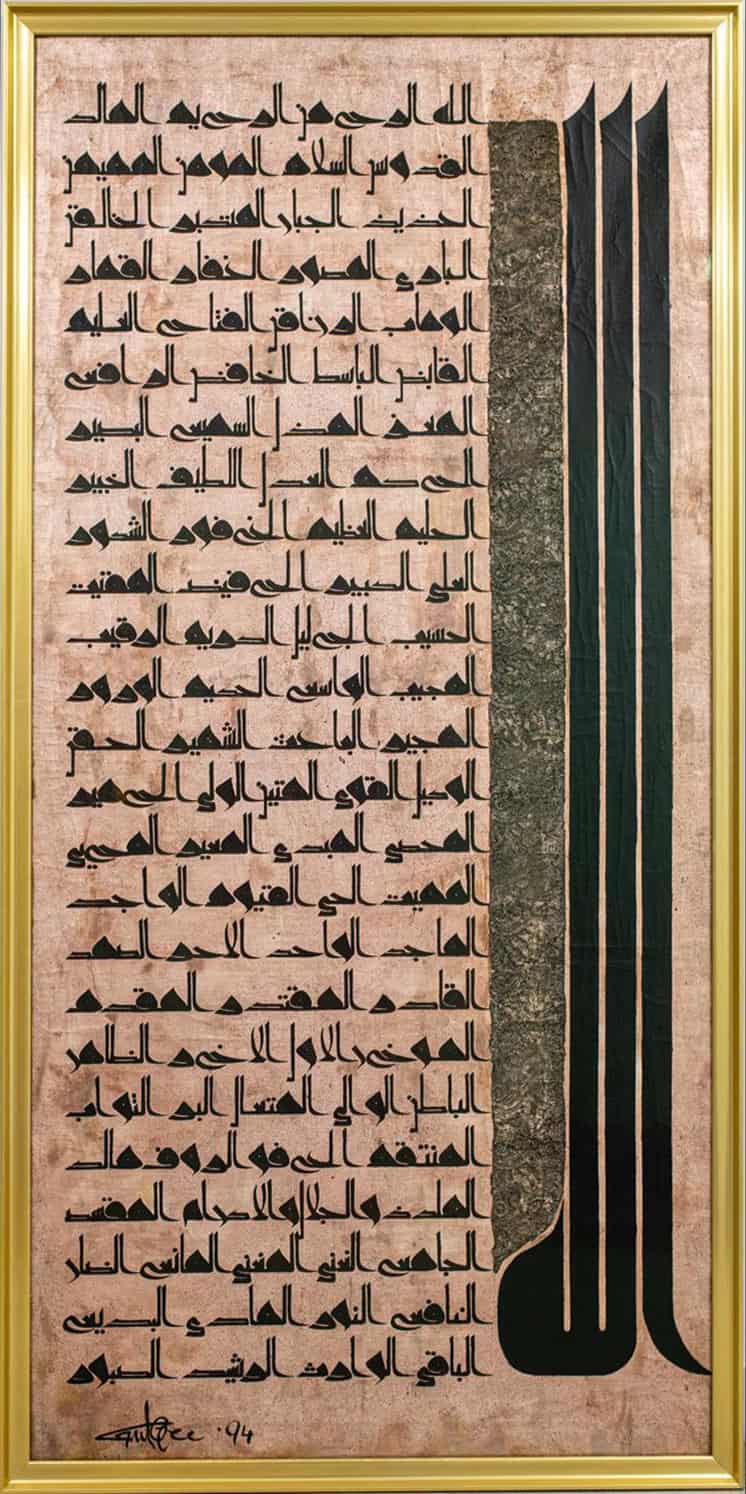 الله الرحمن الرحيم الملك
القدوس السلام المومن المهيمن
العزيز الجبار المتكبر الخالق
الباري المصور الغفار القهار
الوهاب الرزاق الفتاح العليم
القابض الباسط الخافض الرافع
المعز المذل السميع البصير
الحكم العدل اللطيف الخبير
الحليم العظيم الغفور الشكور
العلي الكبير الحفيظ المقيت
الحسيب الجليل الكريم الرقيب
المجيب الواسع الحكيم الودود
المجيد الباعث الشهيد الحق
الوكيل القوي المتين الولي الحميد
المحصي المبدي المعيد المحيي
المميت الحي القيوم الواجد
الماجد الواحد الاحد الصمد
القادر المقتدر المقدم
الموخر الاول الاخر الظاهر
الباطن الوالي المتعال البر التواب
المنتقم العفو الروف مالك
الملك ذو الجلال والاكرام المقسط
الجامع الغني المغني المانع الضار
النافع النور الهادي البديع
الباقي الوارث الرشيد الصبور
الله
'94